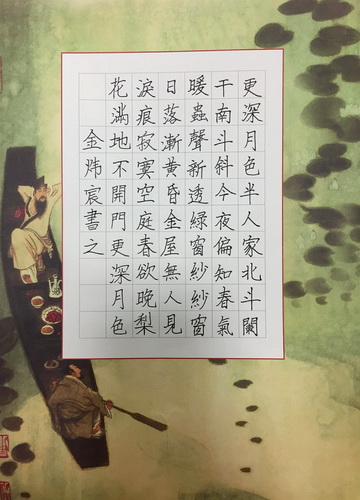 更深月色半人家北斗闌
干南斗斜今夜偏知春氣
暖蟲聲新透綠窗紗紗窗
日落漸黃昏金屋無人見
淚痕寂寞空庭春欲晚梨
花滿地不開門更深月色
金炜宸書之